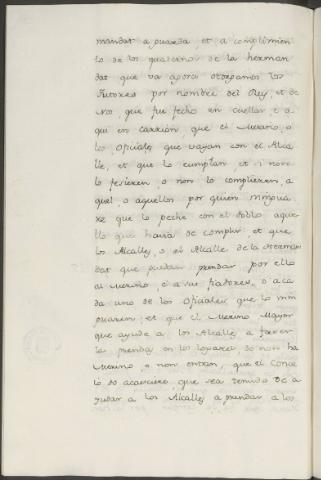 mandat a guarda, et a complimien
to de los quadernos de la herman
dat que va agora otorgamos los
Tutores por nombre del Rey, et de
Nos, que fue fecho en Cuellar e a
qui en Carrion, que el Merino, o
los Oficiales que vayan con el Alca
lle, et que lo cumplan et si non
lo fesieren, o non lo complieren, a
quel, o aquellos por quien mingua
xe que lo peche con el doblo aque
llo que havia de complir, et que
los Alcalles, o el Alcalle de la Herman
dat que puedan prendar por ello
al Merino e a sus fiadores, o a ca
da uno de los Oficiales que lo min
guaren et que el Merino Mayor
que ayude a los Alcalles a facer
la prenda en los logares do non ha
Merino o non entran, que el Conce
lo do acaesciere, que sea tenudo de a
yudar a los Alcalles a prendar a los